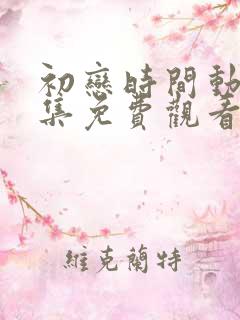 初戀時間動
集免費觀看
維克蘭特